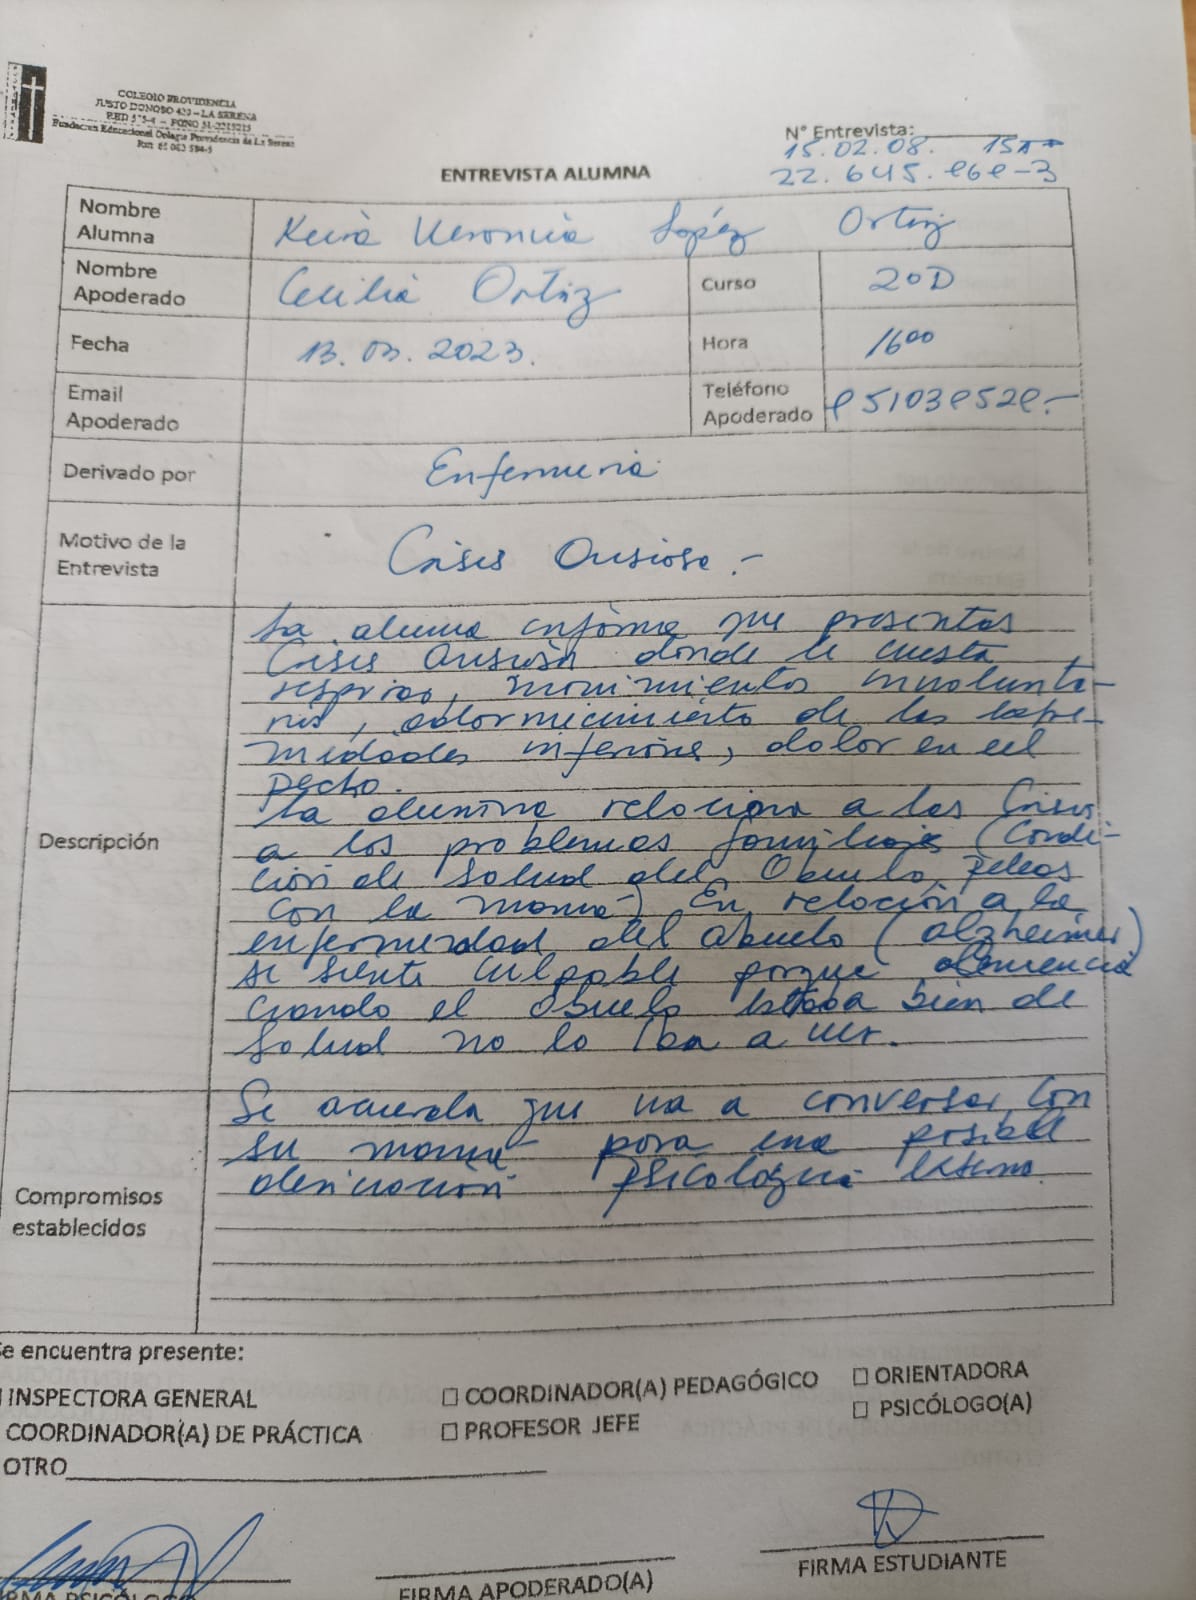 COLEGIO PROVIDENCIA
JUSTO DONOSO 420 – LA SERENA
Fundación Educacional Colegio Providencia de La Serena
N° Entrevista:
15.02.08. 15
ENTREVISTA ALUMNA
Nombre Alumna Veronica López Ortiz
Nombre Apoderado Cecilia Ortiz Curso 2ºD
Fecha 13.03.2023. Hora 16ºº
Email Apoderado Teléfono Apoderado
Derivado por Enfermeria
Motivo de la Entrevista Crisis Ansiosa.-
Descripción
La alumna informa que presentas
Crisis Ansiosa donde le cuesta
respirar, movimientos involunta-
rios, adormecimiento de las extre-
midades inferiores, dolor en el
pecho.
La alumna relaciona a las Crisis
a los problemas familiares (Condi-
ción de salud del Abuelo, peleas
con la mamá) En relación a la
enfermerdad del abuelo (alzheimer)
se siente culpable porque
cuando el abuelo estaba bien de
salud no lo iba a ver.
Compromisos establecidos
Se acuerda que va a conversar con
su mamá para una posible
derivación psicológica externa.
Se encuentra presente:
INSPECTORA GENERAL ☐ COORDINADOR(A) PEDAGÓGICO ☐ ORIENTADORA
COORDINADOR(A) DE PRÁCTICA ☐ PROFESOR JEFE ☐ PSICÓLOGO(A)
OTRO
FIRMA PSICÓLOGO FIRMA APODERADO(A) FIRMA ESTUDIANTE